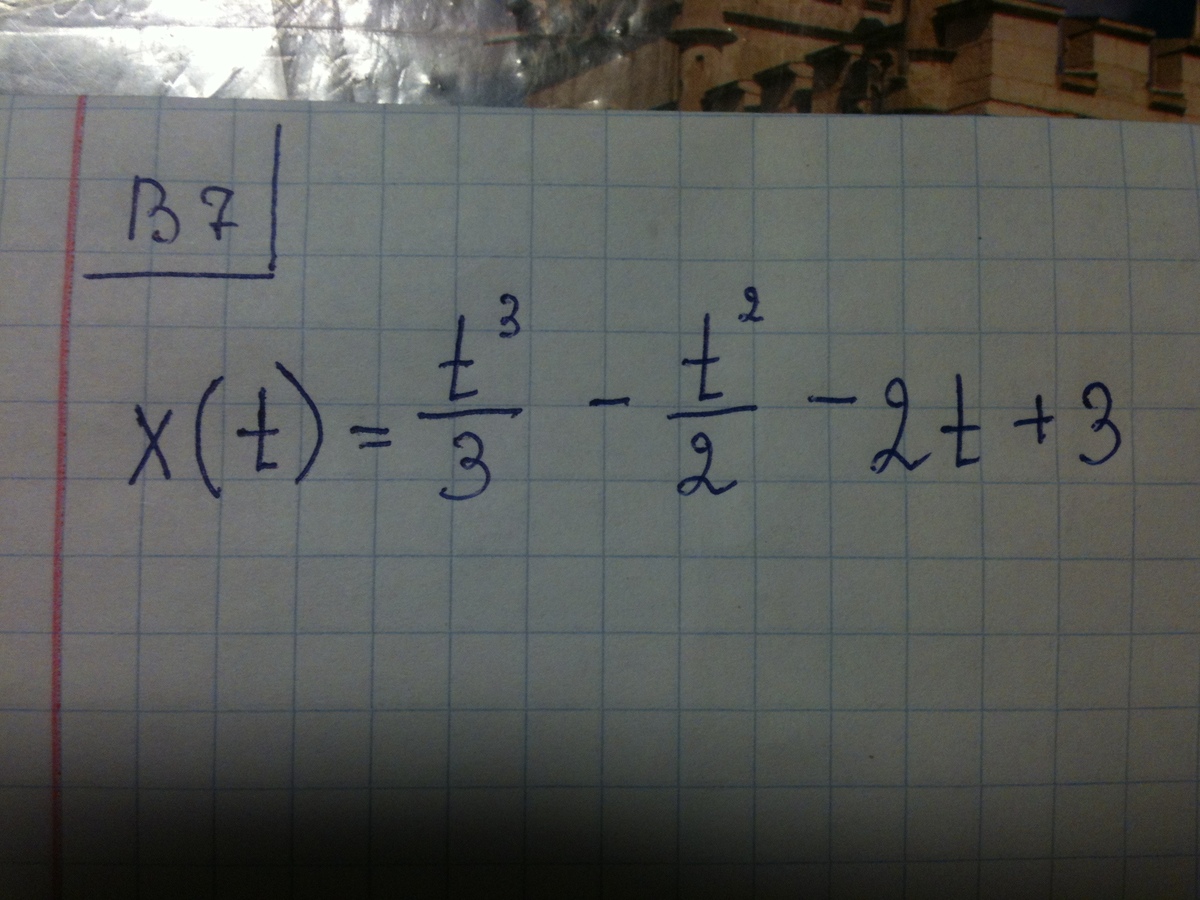 В 7
x(t) = t³/3 - t²/2 - 2t + 3